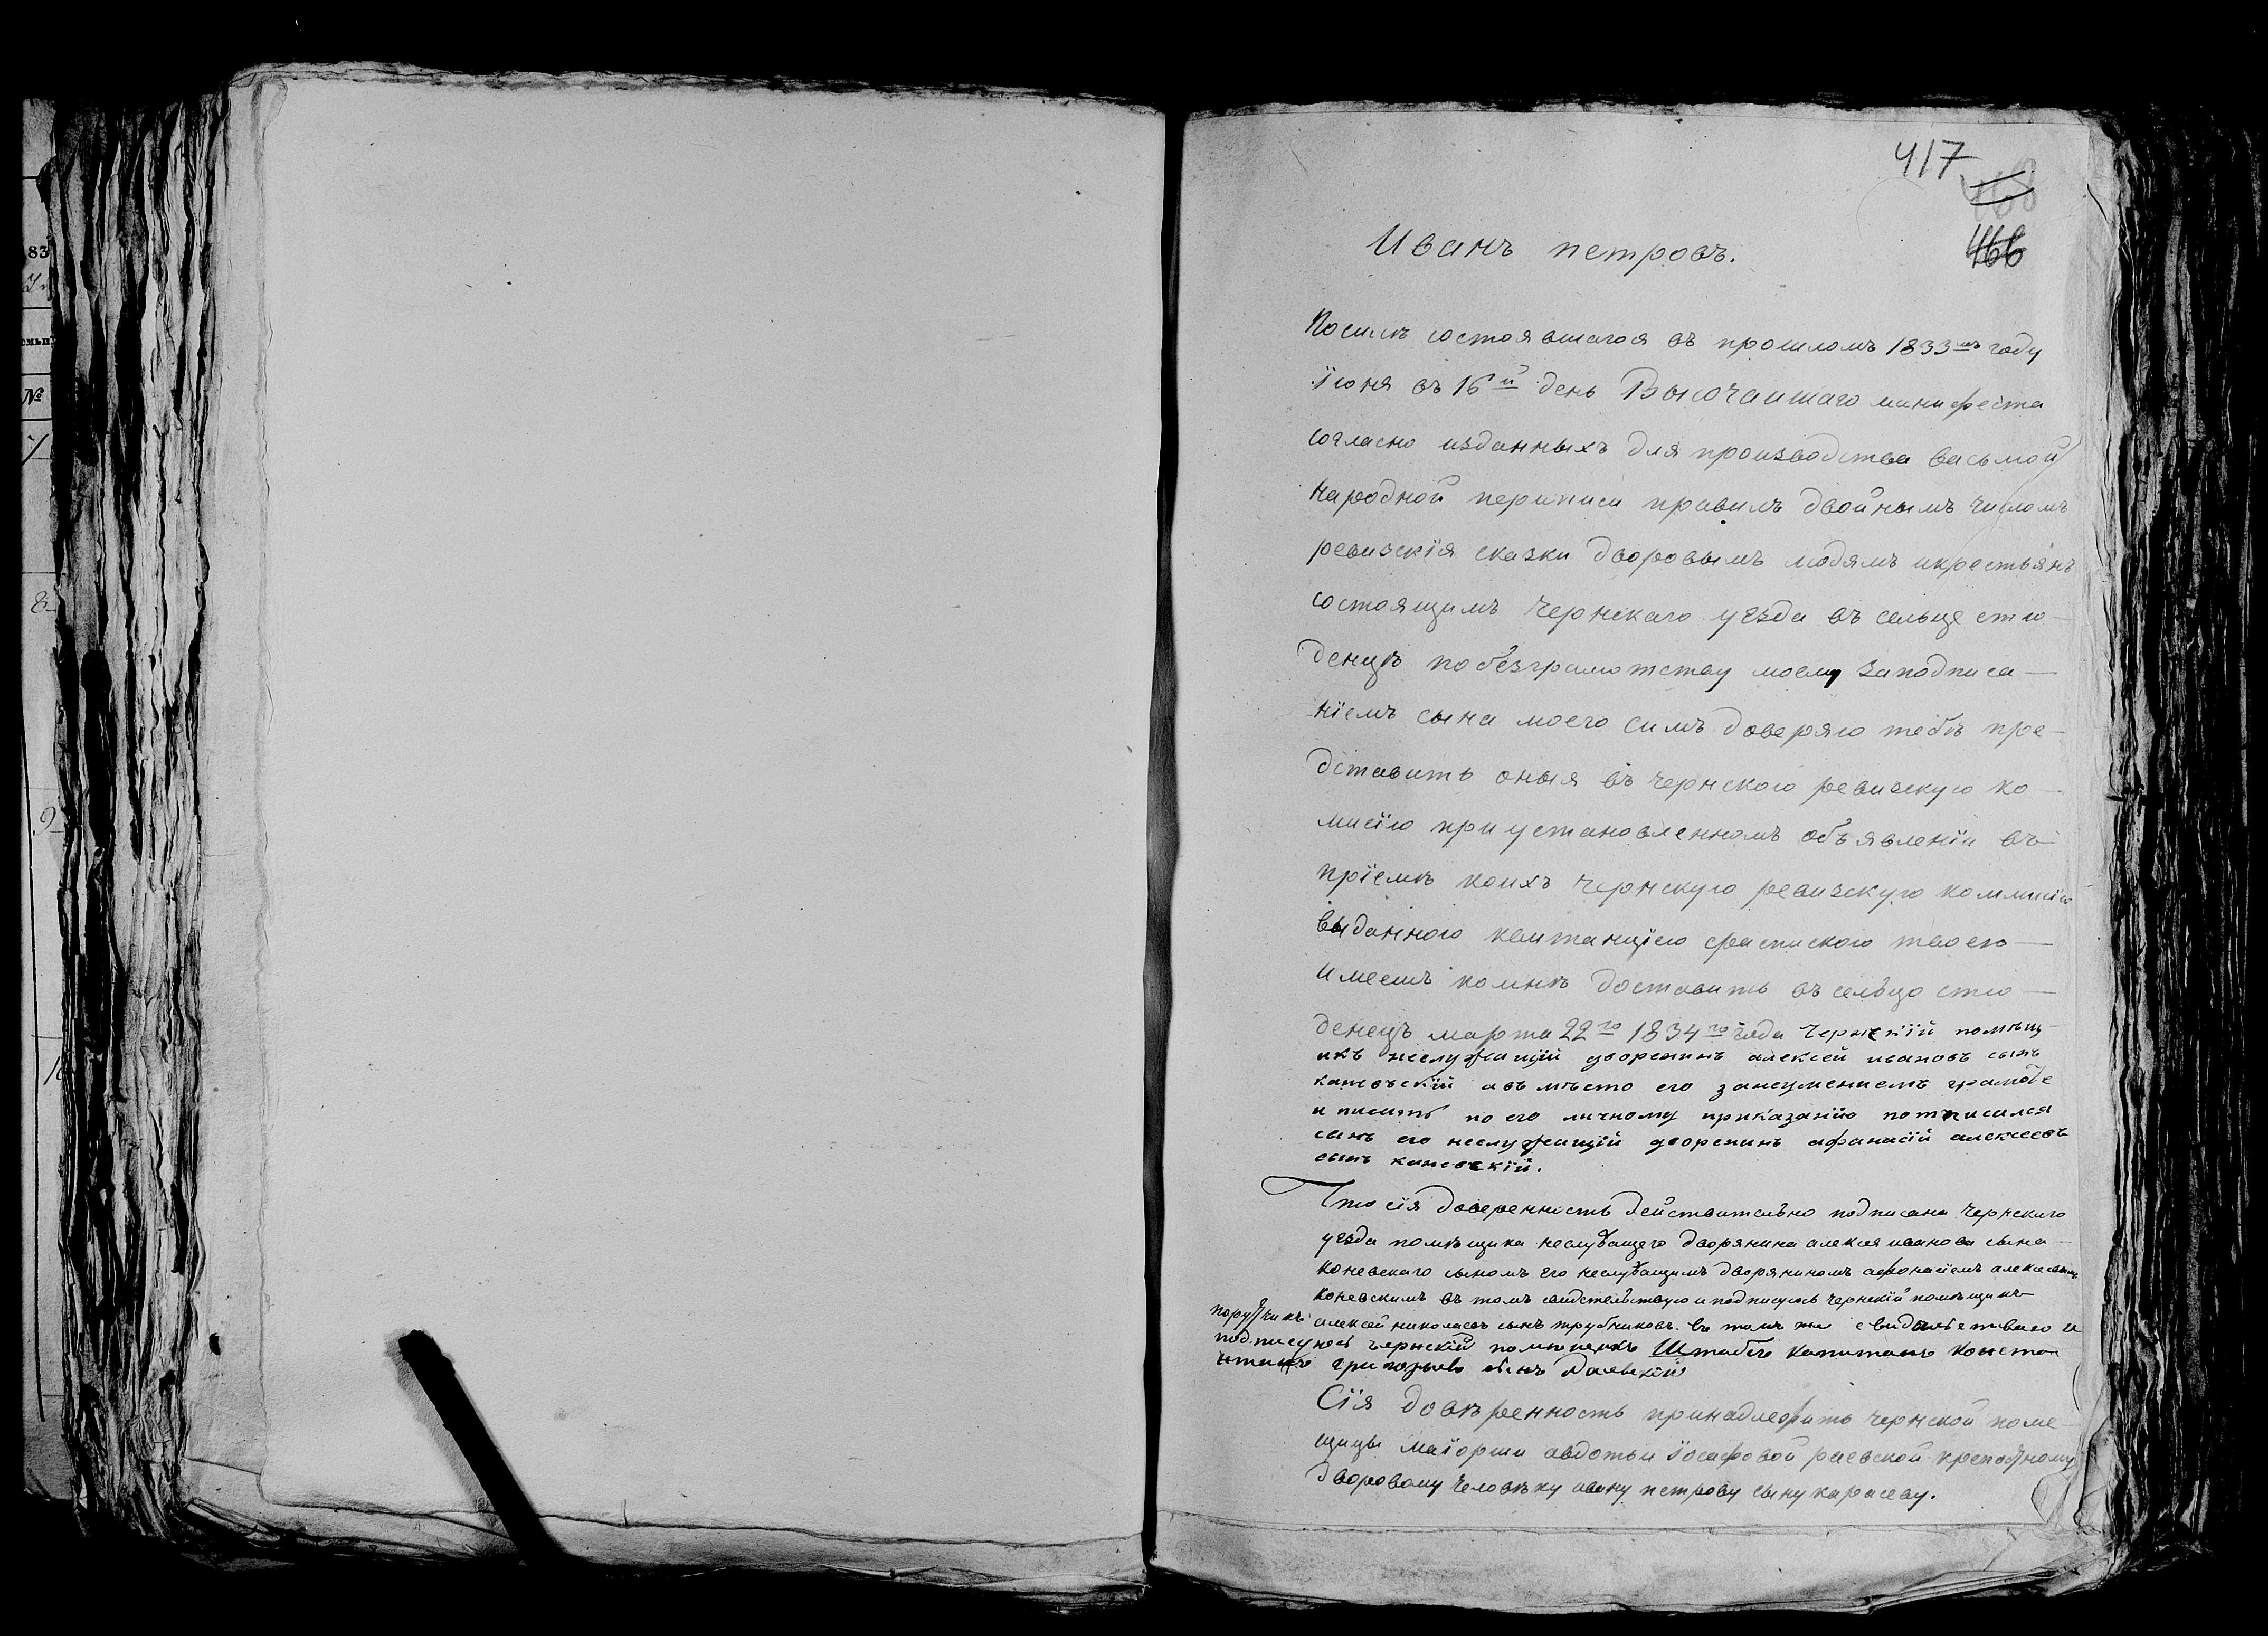 83
№
7
8
9
417
466
Иванъ петровъ.
Посилѣ состоявшагося въ прошломъ 1833мъ году
їюня въ 16й день Высочаишаго манифеста
согласно изданныхъ для производства васьмой
народной переписи правилъ двойнымъ числомъ
ревизскїя сказки дворовымъ людямъ икрестьянъ
состоящимъ чернскаго уѣзда въ сельце стю
денцѣ побезграмотству моему заподписа
нїемъ сына моего симъ доверяю тебѣ пре
дставить оныя въ чернского ревизскую ко
мисїю приустановленномъ объявленїи въ
прїемѣ коихъ чернскую ревизскую коммисїю
выданного квитанцїею росписского твоею
имеешъ комнѣ доставить въ сельцо стю
денецъ марта 22го 1834го года Чернскїй помѣщ
икъ неслужащїй дворенинъ алексей ивановъ сынъ
каневъскїй авъ мѣсто его занеуменїемъ грамоте
и писать по его личному приказанїю потписался
сынъ его неслужащїй дворенинъ афанасїй алексеевъ
сынъ каневскїй.
Что сїя доверенность действительно подписана Чернскаго
уезда помѣщика неслужащего дворянина алексея иванова сына
коневскаго сыномъ его неслужащимъ дворяниномъ афонасїемъ алексеевымъ
коневскимъ въ томъ свидетельствую и подписуюсь чернскїй помѣщикъ
поручикъ алексей николаевъ сынъ трубниковъ. въ томъ же свидѣтетиваю и
подписуюсь чернскїй помещикъ Штабсъ капитанъ Констан
григорьевъ сынъ
Сїя довѣренность принадлежитъ чернской поме
щицы маїорши авдотьи їосафовой раевской крепосному
дворовому человѣку ивану петрову сыну карасеву.